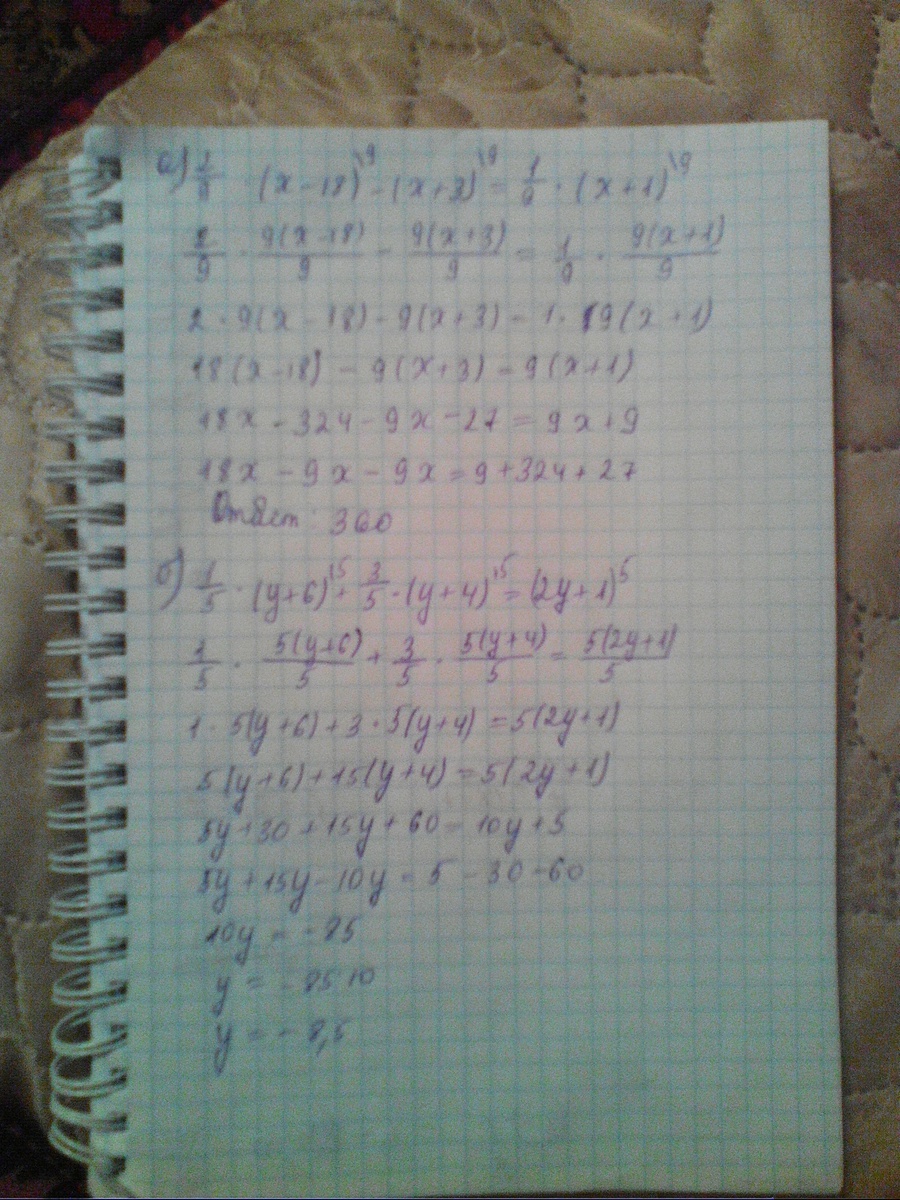 а) 2/9 · (x-18)\9 - (x+3)\9 = 1/9 · (x+1)\9
2/9 · 9(x-18)/9 - 9(x+3)/9 = 1/9 · 9(x+1)/9
2 · 9(x-18) - 9(x+3) = 1 · 9(x+1)
18(x-18) - 9(x+3) = 9(x+1)
18x - 324 - 9x - 27 = 9x + 9
18x - 9x - 9x = 9 + 324 + 27
Ответ: 360
б) 1/5 · (y+6)\5 + 3/5 · (y+4)\5 = (2y+1)\5
1/5 · 5(y+6)/5 + 3/5 · 5(y+4)/5 = 5(2y+1)/5
1 · 5(y+6) + 3 · 5(y+4) = 5(2y+1)
5(y+6) + 15(y+4) = 5(2y+1)
5y + 30 + 15y + 60 = 10y + 5
5y + 15y - 10y = 5 - 30 - 60
10y = -85
y = -85:10
y = -8,5